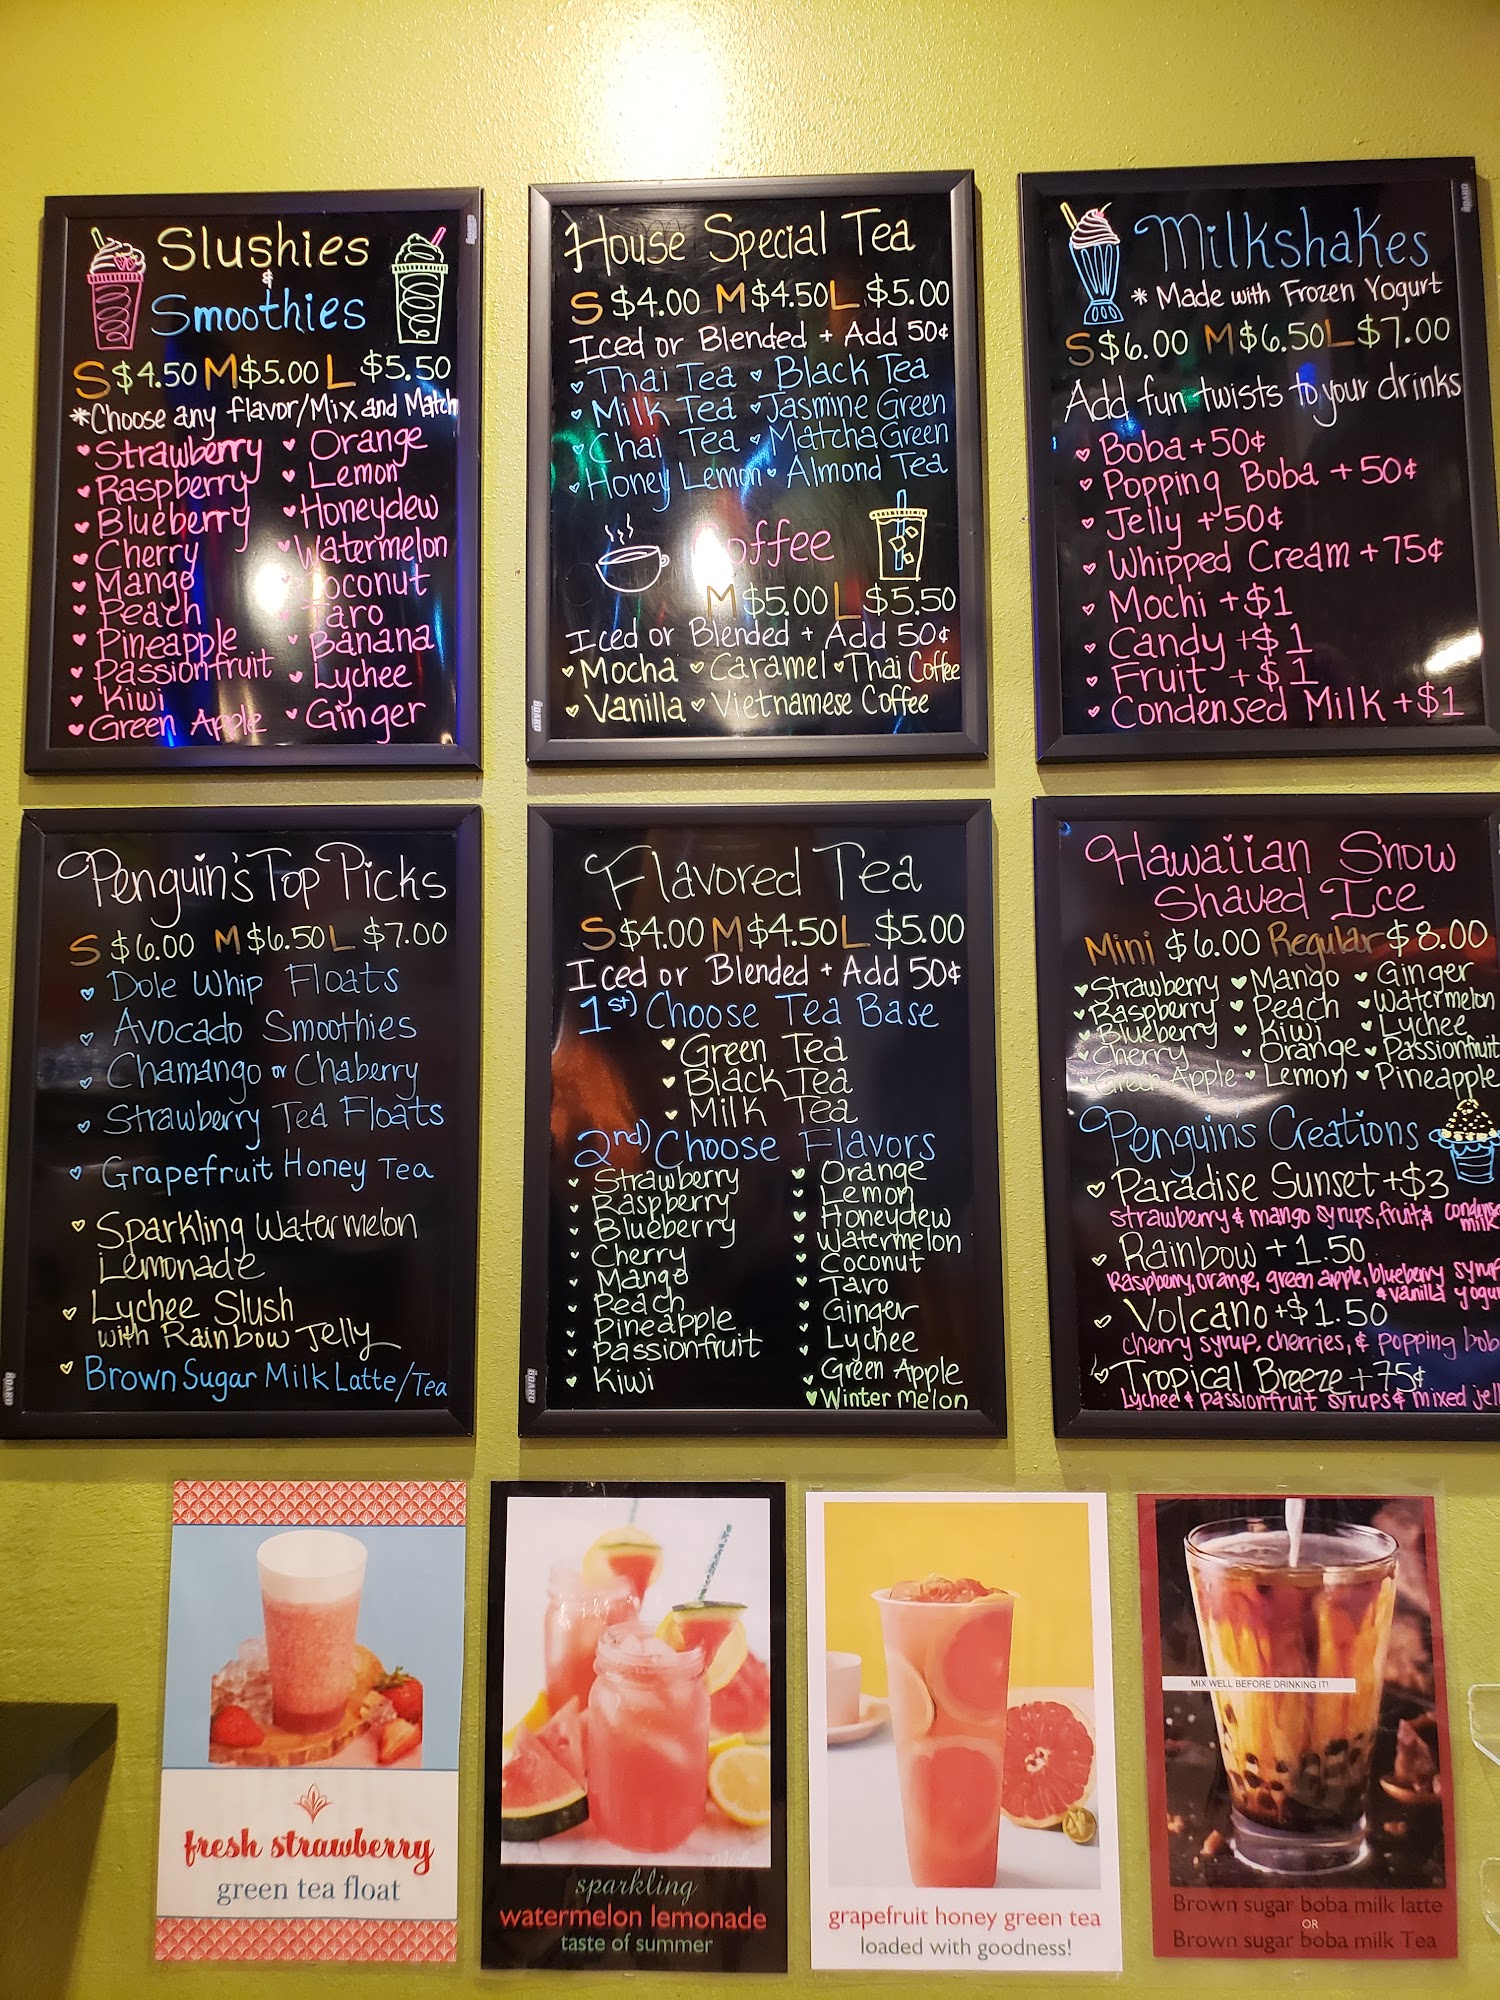 Slushies
&
Smoothies
S $4.50 M $5.00 L $5.50
*Choose any flavor/Mix and Match
Strawberry
Raspberry
Blueberry
Cherry
Mango
Peach
Pineapple
Passionfruit
Kiwi
Green Apple
Orange
Lemon
Honeydew
Watermelon
Coconut
Taro
Banana
Lychee
Ginger
House Special Tea
S $4.00 M $4.50 L $5.00
Iced or Blended + Add 50¢
Thai Tea Black Tea
Milk Tea Jasmine Green
Chai Tea Matcha Green
Honey Lemon Almond Tea
Coffee
M $5.00 L $5.50
Iced or Blended + Add 50¢
Mocha Caramel Thai Coffee
Vanilla Vietnamese Coffee
Milkshakes
* Made with Frozen Yogurt
S $6.00 M $6.50 L $7.00
Add fun twists to your drinks
Boba + 50¢
Popping Boba + 50¢
Jelly + 50¢
Whipped Cream + 75¢
Mochi + $1
Candy + $1
Fruit + $1
Condensed Milk + $1
Penguin's Top Picks
S $6.00 M $6.50 L $7.00
Dole Whip Floats
Avocado Smoothies
Chamango or Chaberry
Strawberry Tea Floats
Grapefruit Honey Tea
Sparkling Watermelon
Lemonade
Lychee Slush
with Rainbow Jelly
Brown Sugar Milk Latte/Tea
Flavored Tea
S $4.00 M $4.50 L $5.00
Iced or Blended + Add 50¢
1st) Choose Tea Base
Green Tea
Black Tea
Milk Tea
2nd) Choose Flavors
Strawberry
Raspberry
Blueberry
Cherry
Mango
Peach
Pineapple
Passionfruit
Kiwi
Orange
Lemon
Honeydew
Watermelon
Coconut
Taro
Ginger
Lychee
Green Apple
Winter melon
Hawaiian Snow
Shaved Ice
Mini $6.00 Regular $8.00
Strawberry Mango Ginger
Raspberry Peach Watermelon
Blueberry Kiwi Lychee
Cherry Orange Passionfruit
Green Apple Lemon Pineapple
Penguin's Creations
Paradise Sunset + $3
Strawberry & mango syrups, fruit, &
milk
Rainbow + 1.50
Raspberry, orange, green apple, blueberry syrup
& vanilla
Volcano + $1.50
cherry syrup, cherries, & popping
Tropical Breeze + 75¢
Lychee & passionfruit syrups & mixed
fresh strawberry
green tea float
sparkling
watermelon lemonade
taste of summer
grapefruit honey green tea
loaded with goodness!
MIX WELL BEFORE DRINKING IT!
Brown sugar boba milk latte
OR
Brown sugar boba milk Tea